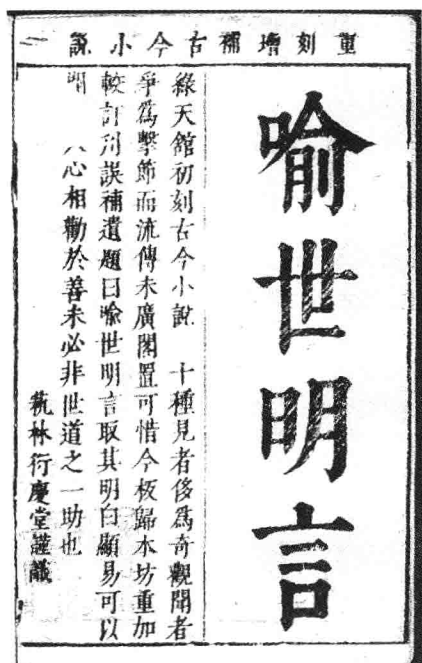 重刻增補古今小說
喻世明言
綠天館初刻古今小說 十種見者侈爲奇觀聞者
爭爲擊節而流傳未廣閣置可惜今板歸本坊重加
較訂刋誤補遺題曰喻世明言取其明白顯易可以
人心相勸於善未必非世道之一助也
藝林衍慶堂謹識